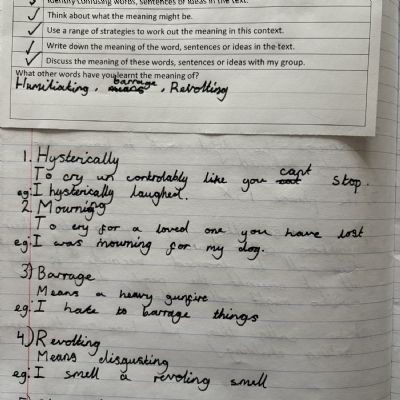 Identify confusing words, sentences or ideas in the text.
Think about what the meaning might be.
Use a range of strategies to work out the meaning in this context.
Write down the meaning of the word, sentences or ideas in the text.
Discuss the meaning of these words, sentences or ideas with my group.
What other words have you learnt the meaning of?
barrage
Humiliating, means, Revolting
1. Hysterically
cant
To cry un controlably like you cant stop.
eg: I hysterically laughed.
2. Mourning
To cry for a loved one you have lost
eg: I was mourning for my dog.
3) Barrage
Means a heavy gunfire
eg: I hate to barrage things
4) Revolting
Means disgusting
eg: I smell a revoling smell